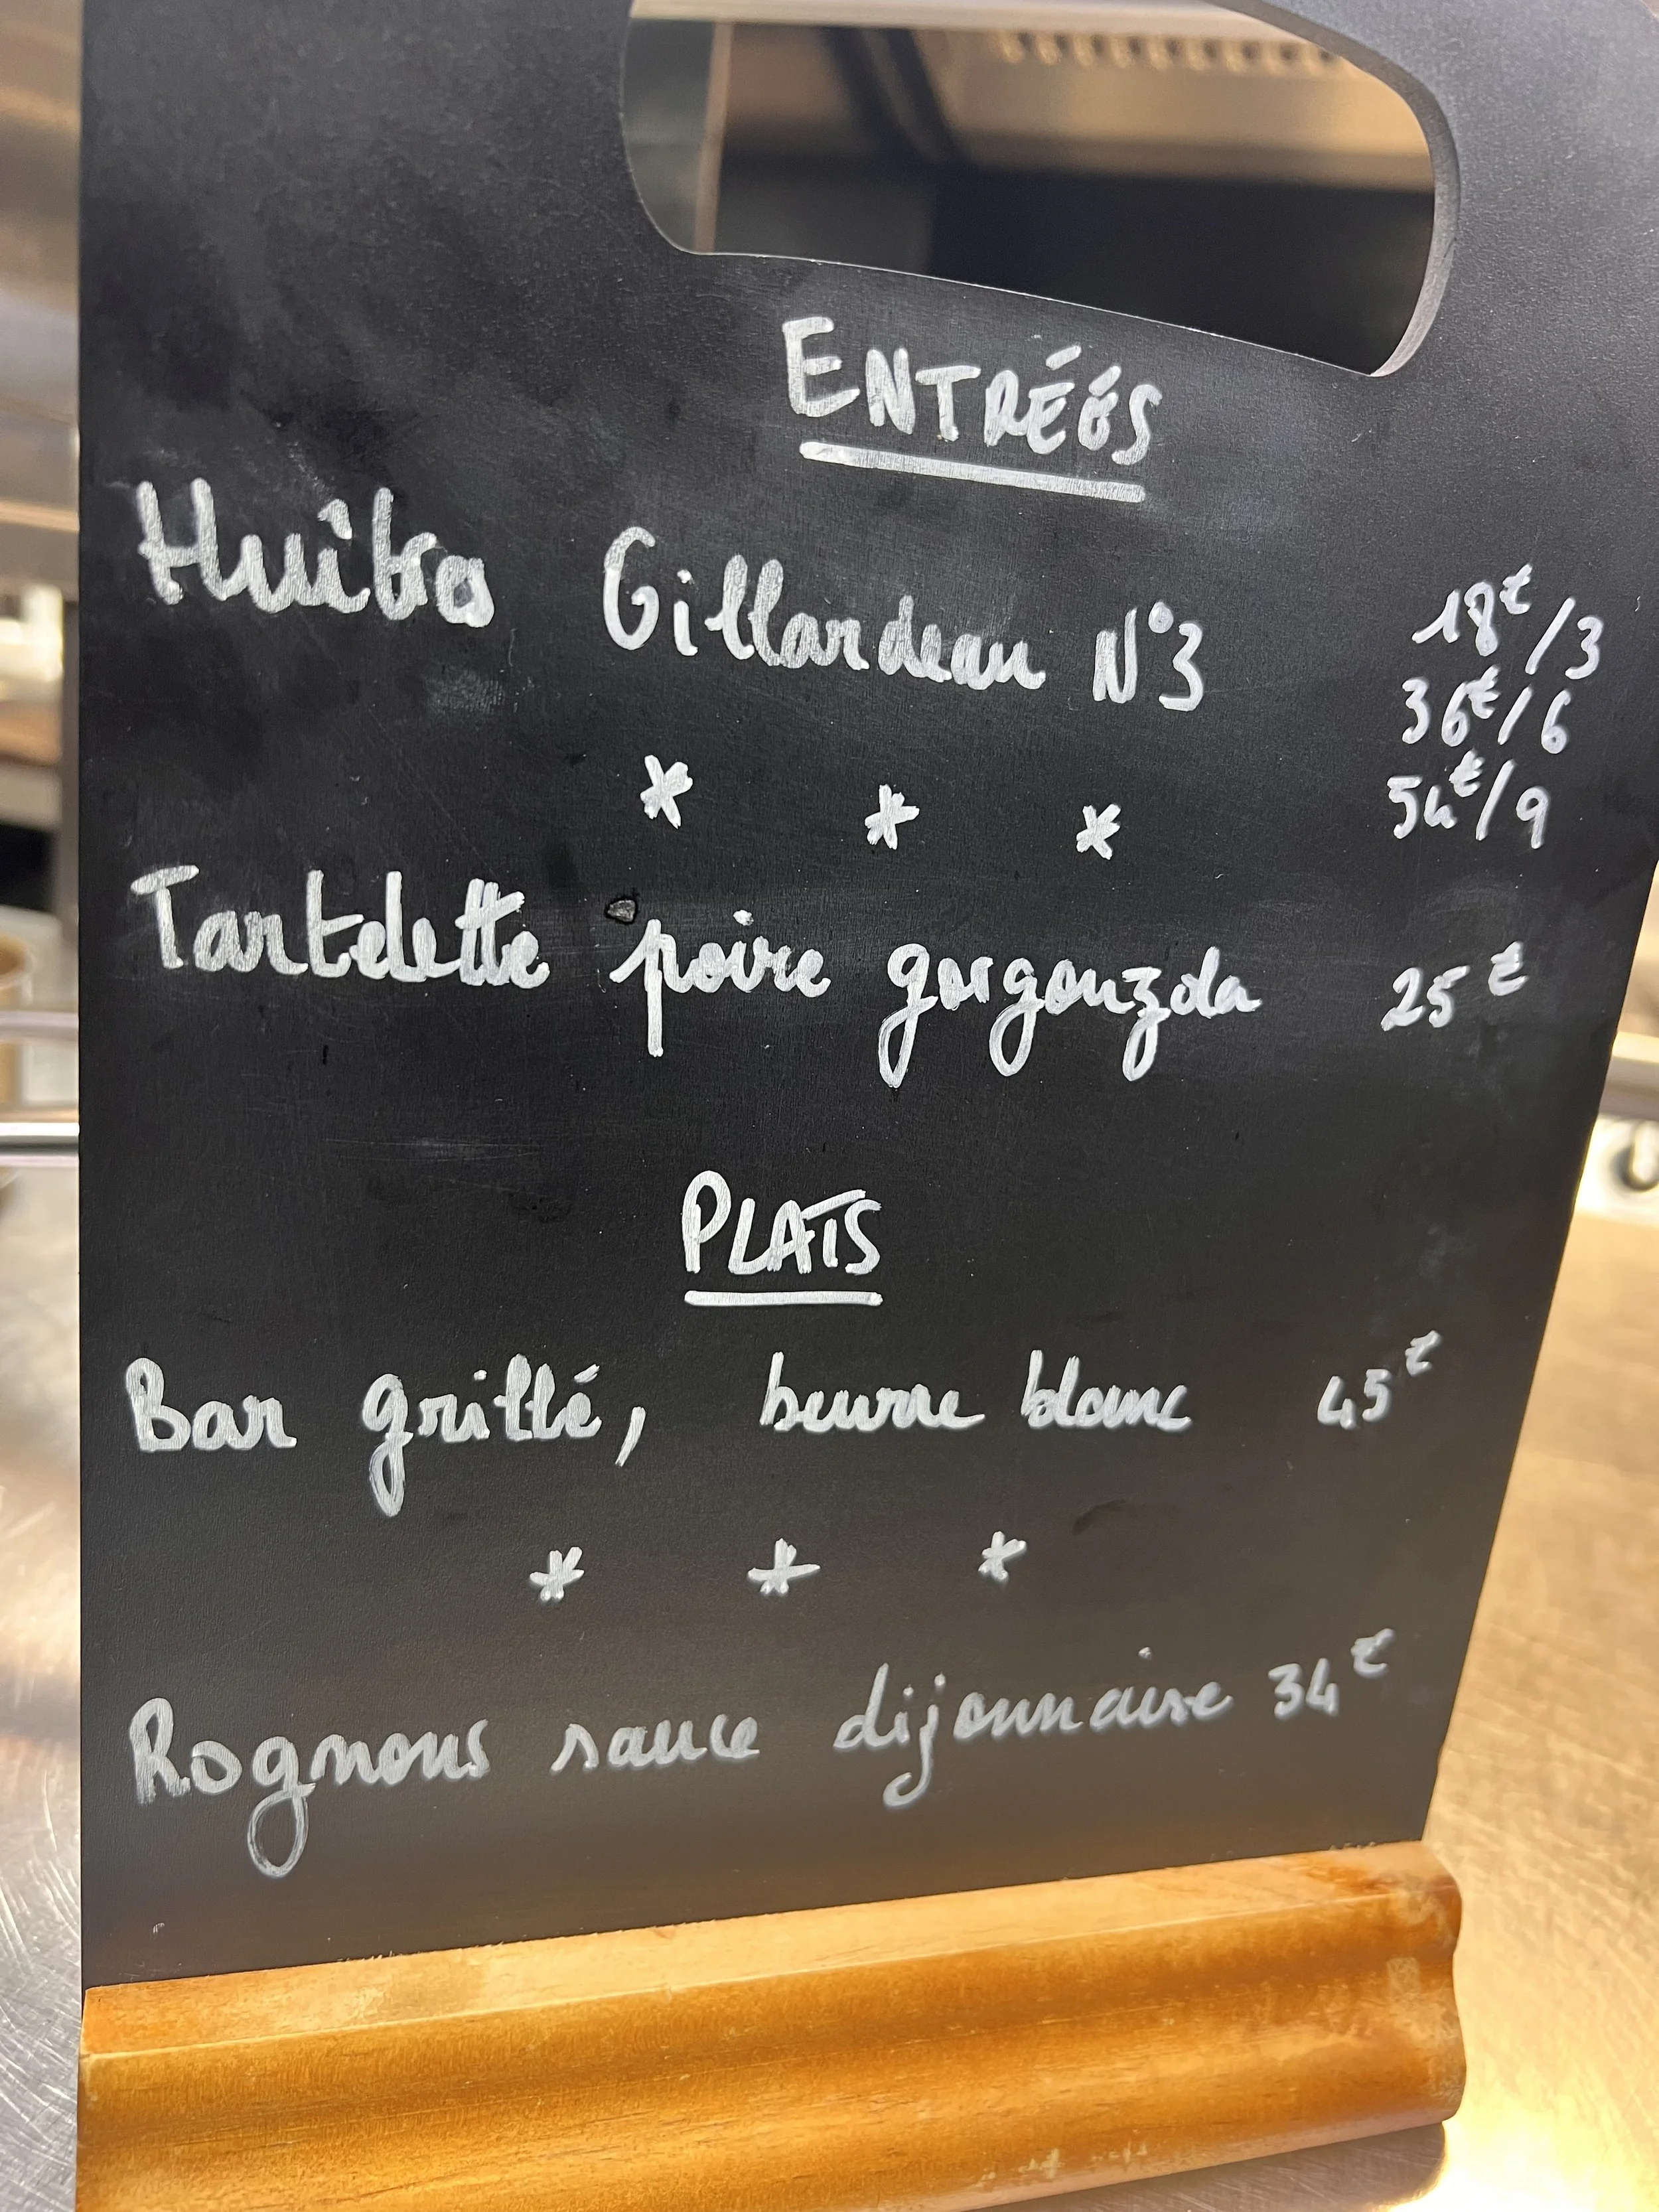 ENTRÉÉS
Huîtres Gillardeau N°3 18€/3
36€/6
54€/9
* * *
Tartelette poire gorgonzola 25€
PLATS
Bar grillé, beurre blanc 45€
* * *
Rognons sauce dijonnaise 34€